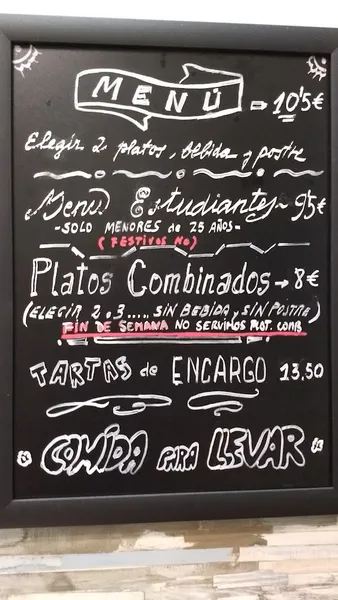 MENÚ → 10'5€
Elegir 2 platos, bebida y postre
Menú Estudiantes - 9'5€
-SOLO MENORES de 25 AÑOS-
(FESTIVOS NO)
Platos Combinados → 8€
(ELEGIR 2 o 3..... SIN BEBIDA y SIN POSTRE)
FIN DE SEMANA NO SERVIMOS PLAT. COMB
TARTAS de ENCARGO 13.50
COMÍDA PARA LLEVAR